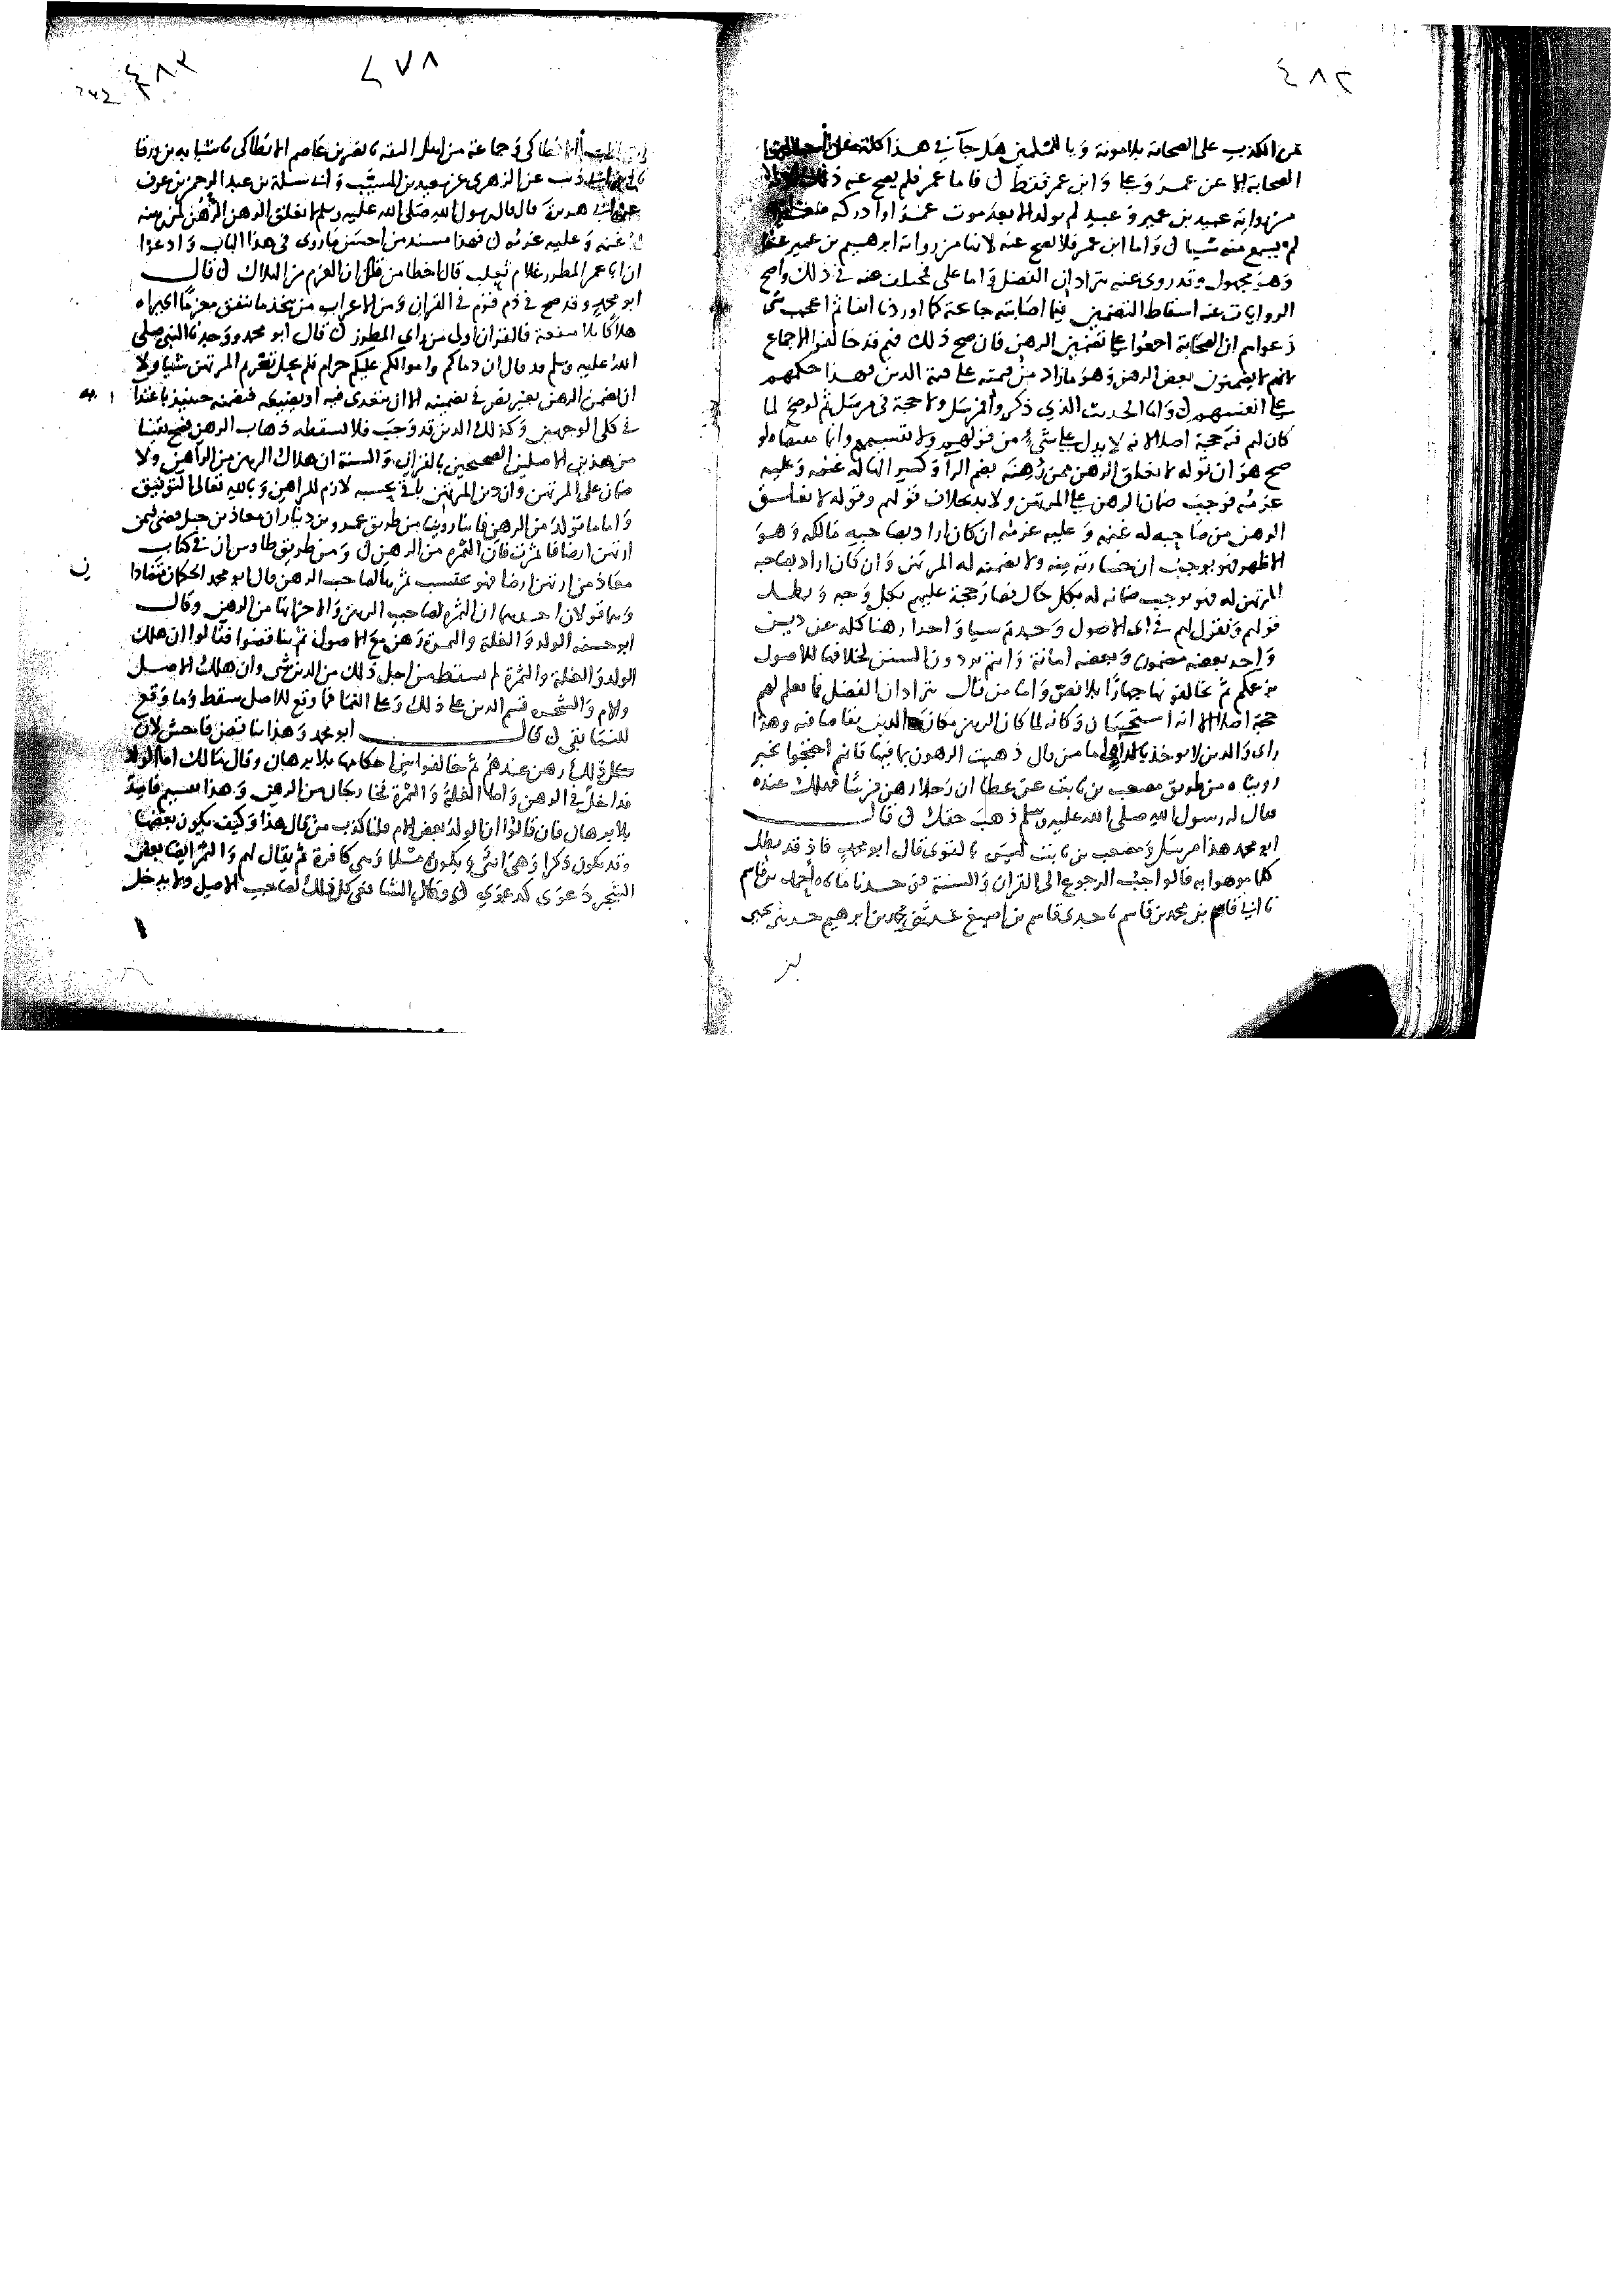 ٤٨٢
من الكذب على الصحابة بلا مونة وبالمسلمين هل جا في هذا كلمة عن احد من
الصحابة الا عن عمر وعلى وابن عمر فقط فاما عمر فلم يصح عنه ذلك لانه
من رواية عبيد بن عمير وعبيد لم يولد الا بعد موت عمر او ادركه صغيرا
لم يسمع منه شيا واما ابن عمر فلا يصح عنه لانها من رواية ابرهيم بن عمير عنه
وهو مجهول وقد روى عنه يترادان الفضل واما على فمختلف عنه في ذلك واصح
الروايات عنه اسقاط التضمين فيما اصابته جايحة كما اوردنا انفا ثم اعجب شي
دعواهم ان الصحابة اجمعوا على تضمين الرهن فان صح ذلك فهم قد خالفوا الاجماع
لانهم لا يضمنون بعض الرهن وهو ما زاد من قيمته على قيمة الدين فهذا حكمهم
على انفسهم واما الحديث الذي ذكروا فمرسل ولا حجة في مرسل ثم لو صح لما
كان لهم فيه حجة اصلا لانه لا يدل على شي من قولهم ولا تقسيمهم وانما مقتضاه لو
صح هو ان قوله لا يغلق الرهن ممن رُهنه بضم الرا وكسر الها له غنمه وعليه
غرمه فوجب ضمان الرهن على المرتهن ولا بد بخلاف قولهم وقوله لا يغلق
الرهن من صاحبه له غنمه وعليه غرمه ان كان اراد بصاحبه مالكه وهو
الاظهر فهو يوجب ان خسارته منه ولا يضمنه له المرتهن وان كان اراد بصاحبه
المرتهن له فهو يوجب ضمانه له بكل حال فصار حجة عليهم بكل وجه وبطل
قولهم ونقول لهم في اى الاصول وجدتم شيا واحدا رهنا كله عن دين
واحد بعضه مضمون وبعضه امانة وانتم تردون السنن لخلافها للاصول
بزعمكم ثم تخالفونها جهارا بلا نص واما من قال يترادان الفضل فما نعلم لهم
حجة اصلا الا انه استحسان وكانه لما كان الرهن مكان الدين تقاصا فيه وهذا
راى والدين لا يوخذ بالراى واما من قال ذهبت الرهون بما فيها فانهم احتجوا بخبر
رويناه من طريق مصعب بن ثابت عن عطا ان رجلا رهن فرسا فهلك عنده
فقال له رسول الله صلى الله عليه وسلم ذهب حقك قال
ابو محمد هذا مرسل ومصعب بن ثابت ليس بالقوى قال ابو محمد فاذ قد بطل
كلما موهوا به فالواجب الرجوع الى القران والسنة فوجدنا ما ناه احمد بن قاسم
نا ابى قاسم بن محمد بن قاسم نا جدى قاسم بن اصبغ حدثنى محمد بن ابرهيم حدثنى يحيى
بن
٤٨٣
٤٧٨
الانطاكى وجماعة من اهل الثقة نا نصر بن عاصم الانطاكى نا شبابة بن ورقا
نا ابن ابى ذئب عن الزهرى عن سعيد بن المسيب وابى سلمة بن عبد الرحمن بن عوف
عن ابى هريرة قال قال رسول الله صلى الله عليه وسلم لا يغلق الرهن الرهن لمن رهنه
له غنمه وعليه غرمه فهذا مسند من احسن ما روى في هذا الباب وادعوا
ان ابا عمر المطرز غلام ثعلب قال اخطا من قال ان الغرم من الهلاك قال
ابو محمد وقد صح في ذم قوم في القران ومن الاعراب من يتخذ ما ينفق مغرما اى يراه
هلاكا بلا منفعة فالقران اولى من راى المطرز قال ابو محمد ووجدنا النبي صلى
الله عليه وسلم قد قال ان دماكم واموالكم عليكم حرام فلم يحل تغريم المرتهن شيا ولا
ان يضمن الرهن بغير نص في تضمينه الا ان يتعدى فيه او يضيعه فيضمنه حينيذ باعتدائه
في كلى الوجهين وكذلك الدين قد وجب فلا يسقطه ذهاب الرهن فصح يقينا
من هذين الاصلين الصحيحين بالقران والسنة ان هلاك الرهن من الراهن ولا
ضمان على المرتهن وان دين المرتهن باق بحسبه لازم للراهن وبالله تعالى التوفيق
واما ما تولد من الرهن فاننا روينا من طريق عمرو بن دينار ان معاذ بن جبل قضى فيمن
ارتهن ارضا فاثمرت فان الثمرة من الرهن ومن طريق طاوس ان في كتاب
معاذ من ارتهن ارضا فهو يحتسب ثمرها لصاحب الرهن قال ابو محمد الحكمان متضادا
وهما قولان احدهما ان الثمرة لصاحب الرهن والاخر انها من الرهن وقال
ابو حنيفة الولد والغلة والثمرة رهن مع الاصول ثم تناقضوا فقالوا ان هلك
الولد والغلة والثمرة لم يسقط من اجل ذلك من الدين شي وان هلك الاصل
والام والشجر قسم الدين على ذلك وعلى النما فما وقع للاصل سقط وما وقع
للنما بقى قال ابو محمد وهذا تناقض فاحش لان
كل ذلك رهن عندهم ثم خالفوا بين احكامها بلا برهان وقال مالك اما الولد
فداخل في الرهن واما الغلة والثمرة فخارجان من الرهن وهذا تقسيم فاسد
بلا برهان فان قالوا ان الولد بعض الام قلنا كذب من قال هذا وكيف يكون بعضها
وقد يكون ذكرا وهي انثى ويكون مسلما وهي كافرة ثم يقال لهم والثمر ايضا بعض
الشجر دعوى كدعوى وقال الشافعى كل ذلك لصاحب الاصل ولا يدخل